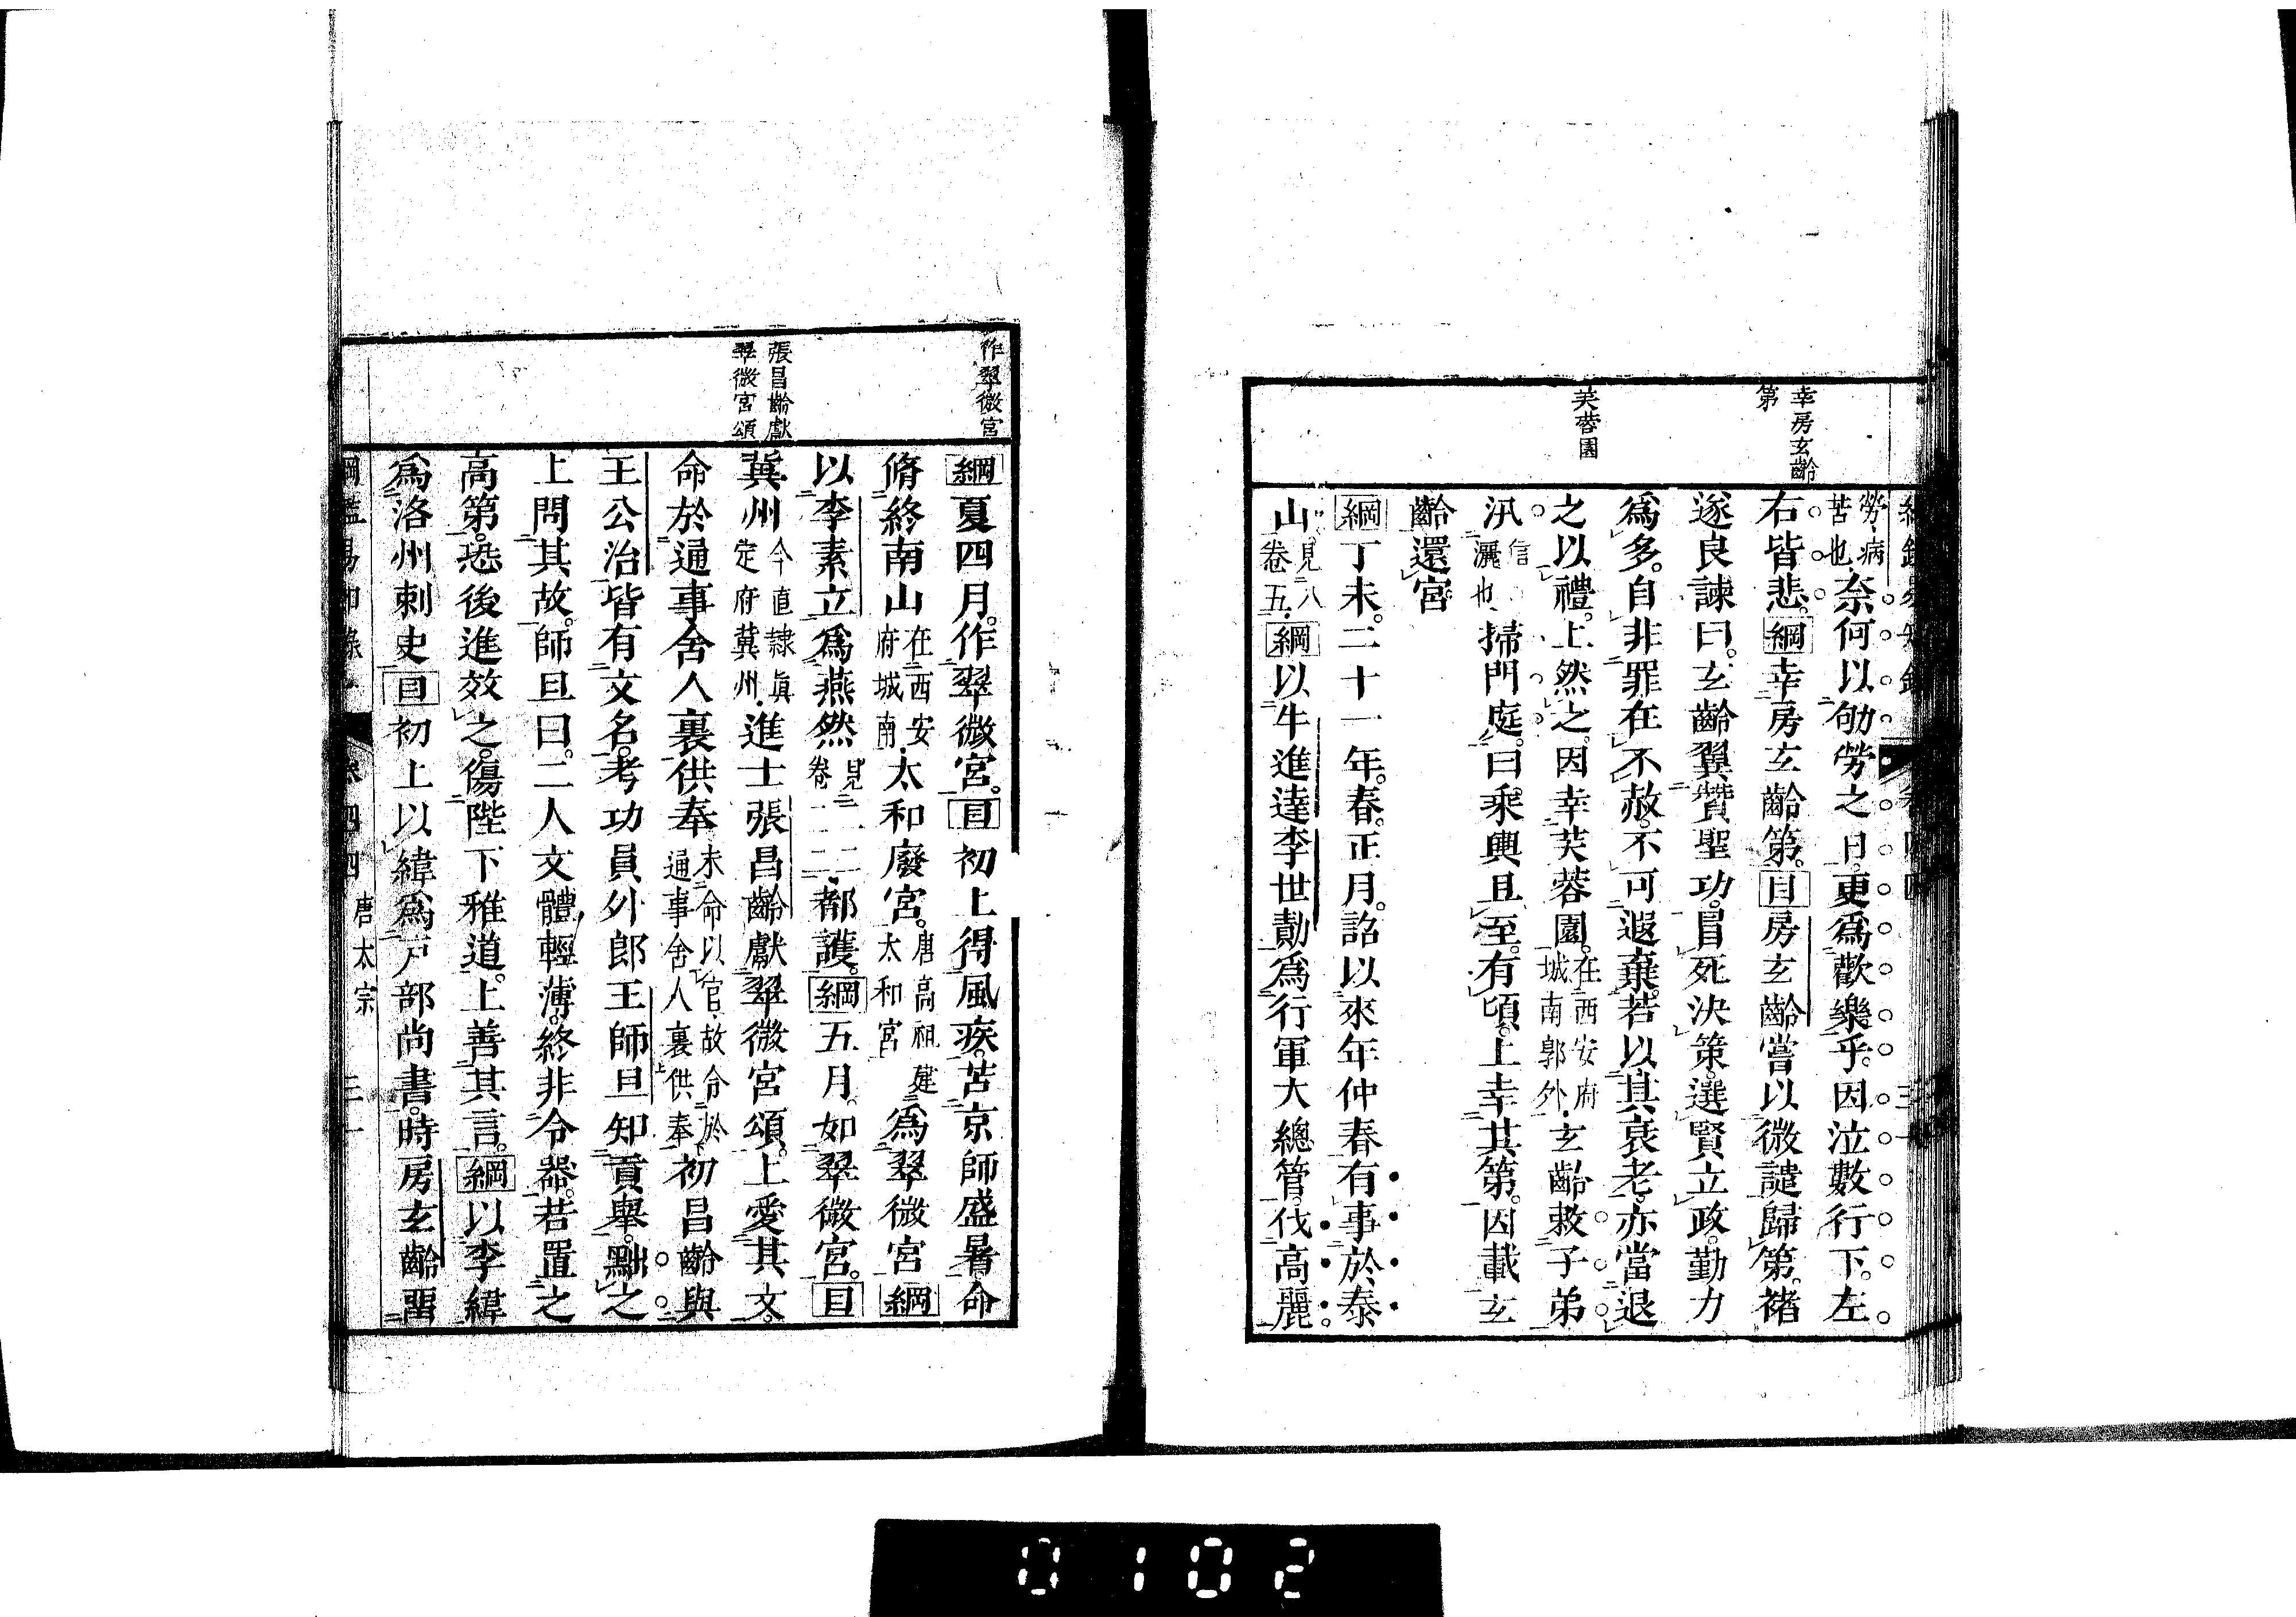 幸房玄齡
第
芙蓉園
勞病
苦也奈何以劬勞之日更爲歡樂乎因泣數行下左
右皆悲綱幸房玄齡第目房玄齡嘗以微譴歸第褚
遂良諫曰玄齡翼贊聖功冒死決策選賢立政勤力
爲多自非罪在不赦不可遐棄若以其衰老亦當退
之以禮上然之因幸芙蓉園在西安府城南郭外玄齡敕子弟
汛信灑也掃門庭曰乘輿且至有頃上幸其第因載玄
齡還宮
綱丁未二十一年春正月詔以來年仲春有事於泰
山見八卷五綱以牛進達李世勣爲行軍大總管伐高麗
作翠微宮
張昌齡獻
翠微宮頌
綱夏四月作翠微宮目初上得風疾苦京師盛暑命
脩終南山在西安府城南太和廢宮唐高祖建太和宮爲翠微宮綱
以李素立爲燕然見卷二二都護綱五月如翠微宮目
冀州今直隸眞定府冀州進士張昌齡獻翠微宮頌上愛其文
命於通事舍人裏供奉未命以官故令於通事舍人裏供奉初昌齡與
王公治皆有文名考功員外郎王師旦知貢舉黜之
上問其故師旦曰二人文體輕薄終非令器若置之
高第恐後進效之傷陛下雅道上善其言綱以李緯
爲洛州刺史目初上以緯爲戶部尚書時房玄齡畱
唐太宗
0102